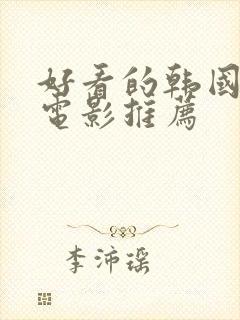 好看的韩國
電影推薦
李沛瑶